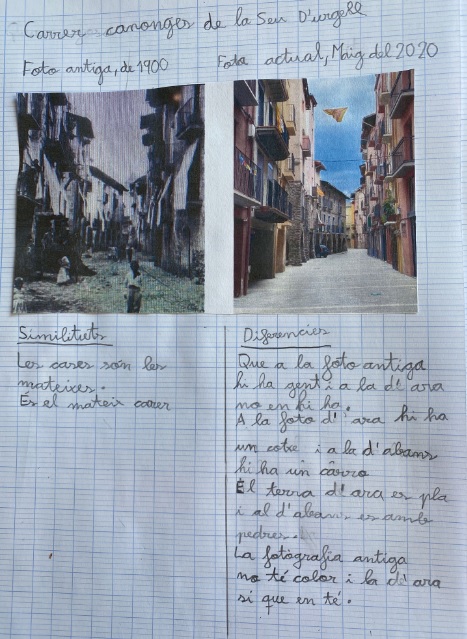 Carrer canonges de la Seu D'urgell
Foto antiga, de 1900
Foto actual, Maig del 2020
Similituts
Les cases són les
mateixes.
És el mateix carrer
Diferencies
Que a la foto antiga
hi ha gent i a la d'ara
no en hi ha.
A la foto d'ara hi ha
un cotxe i a la d'abans
hi ha un càrro
El terra d'ara es pla
i el d'abans es amb
pedres.
La fotografia antiga
no té color i la d'ara
si que en té.